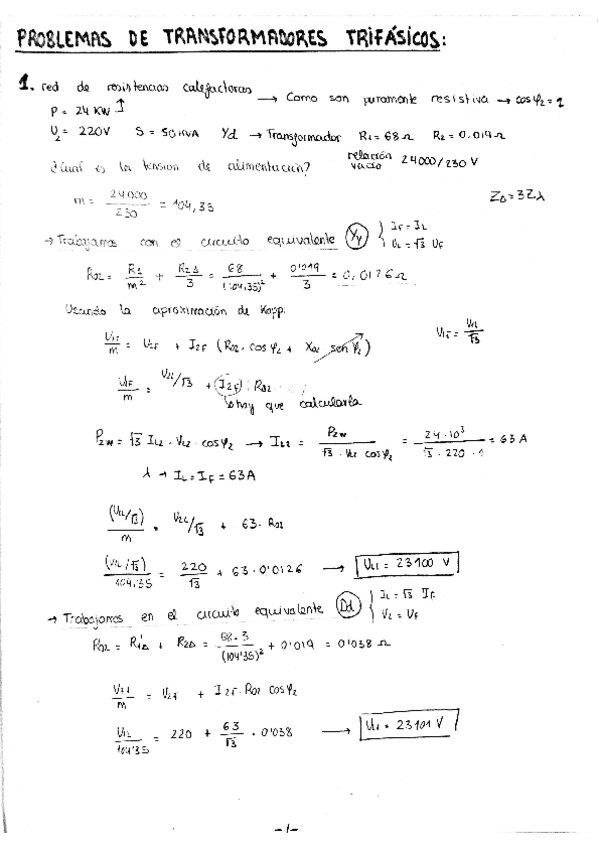 PROBLEMAS DE TRANSFORMADORES TRIFÁSICOS:
1. red de resistencias calefactoras → Como son puramente resistiva → cosφ₂ = 1
P = 24 KW
U₂ = 220V S = 50KVA Yd → Transformador R₁ = 68Ω R₂ = 0.019Ω
¿Cual es la tension de alimentación? relación vacío 24000/230 V
m = 24000/230 = 104,35 Z_Δ = 3Z_λ
→ Trabajamos con el circuito equivalente Yy { I_F = I_L
U_L = √3 U_F
R₀₂ = R₁/m² + R₂Δ/3 = 68/(104,35)² + 0'019/3 = 0,0126Ω
Usando la aproximación de Kapp:
U₁F/m = U₂F + I₂F (R₀₂ · cosφ₂ + X₀₂ senφ₂) U₁F = U₁L/√3
U₁F/m = U₂L/√3 + I₂F · R₀₂
hay que calcularla
P₂w = √3 I_L₂ · U₂L · cosφ₂ → I_L₂ = P₂w/(√3 · U₂L cosφ₂) = 24·10³/(√3 · 220 · 1) = 63A
λ → I_L = I_F = 63A
(U₁L/√3)/m = U₂L/√3 + 63 · R₀₂
(U₁L/√3)/104,35 = 220/√3 + 63 · 0'0126 → U₁L = 23100 V
→ Trabajamos en el circuito equivalente Dd { I_L = √3 I_F
U_L = U_F
R₀₂ = R'₁Δ + R₂Δ = 68·3/(104'35)² + 0'019 = 0'038Ω
U₁F/m = U₂F + I₂F · R₀₂ cosφ₂
U₁L/104'35 = 220 + 63/√3 · 0'038 → U₁L = 23101 V
-1-